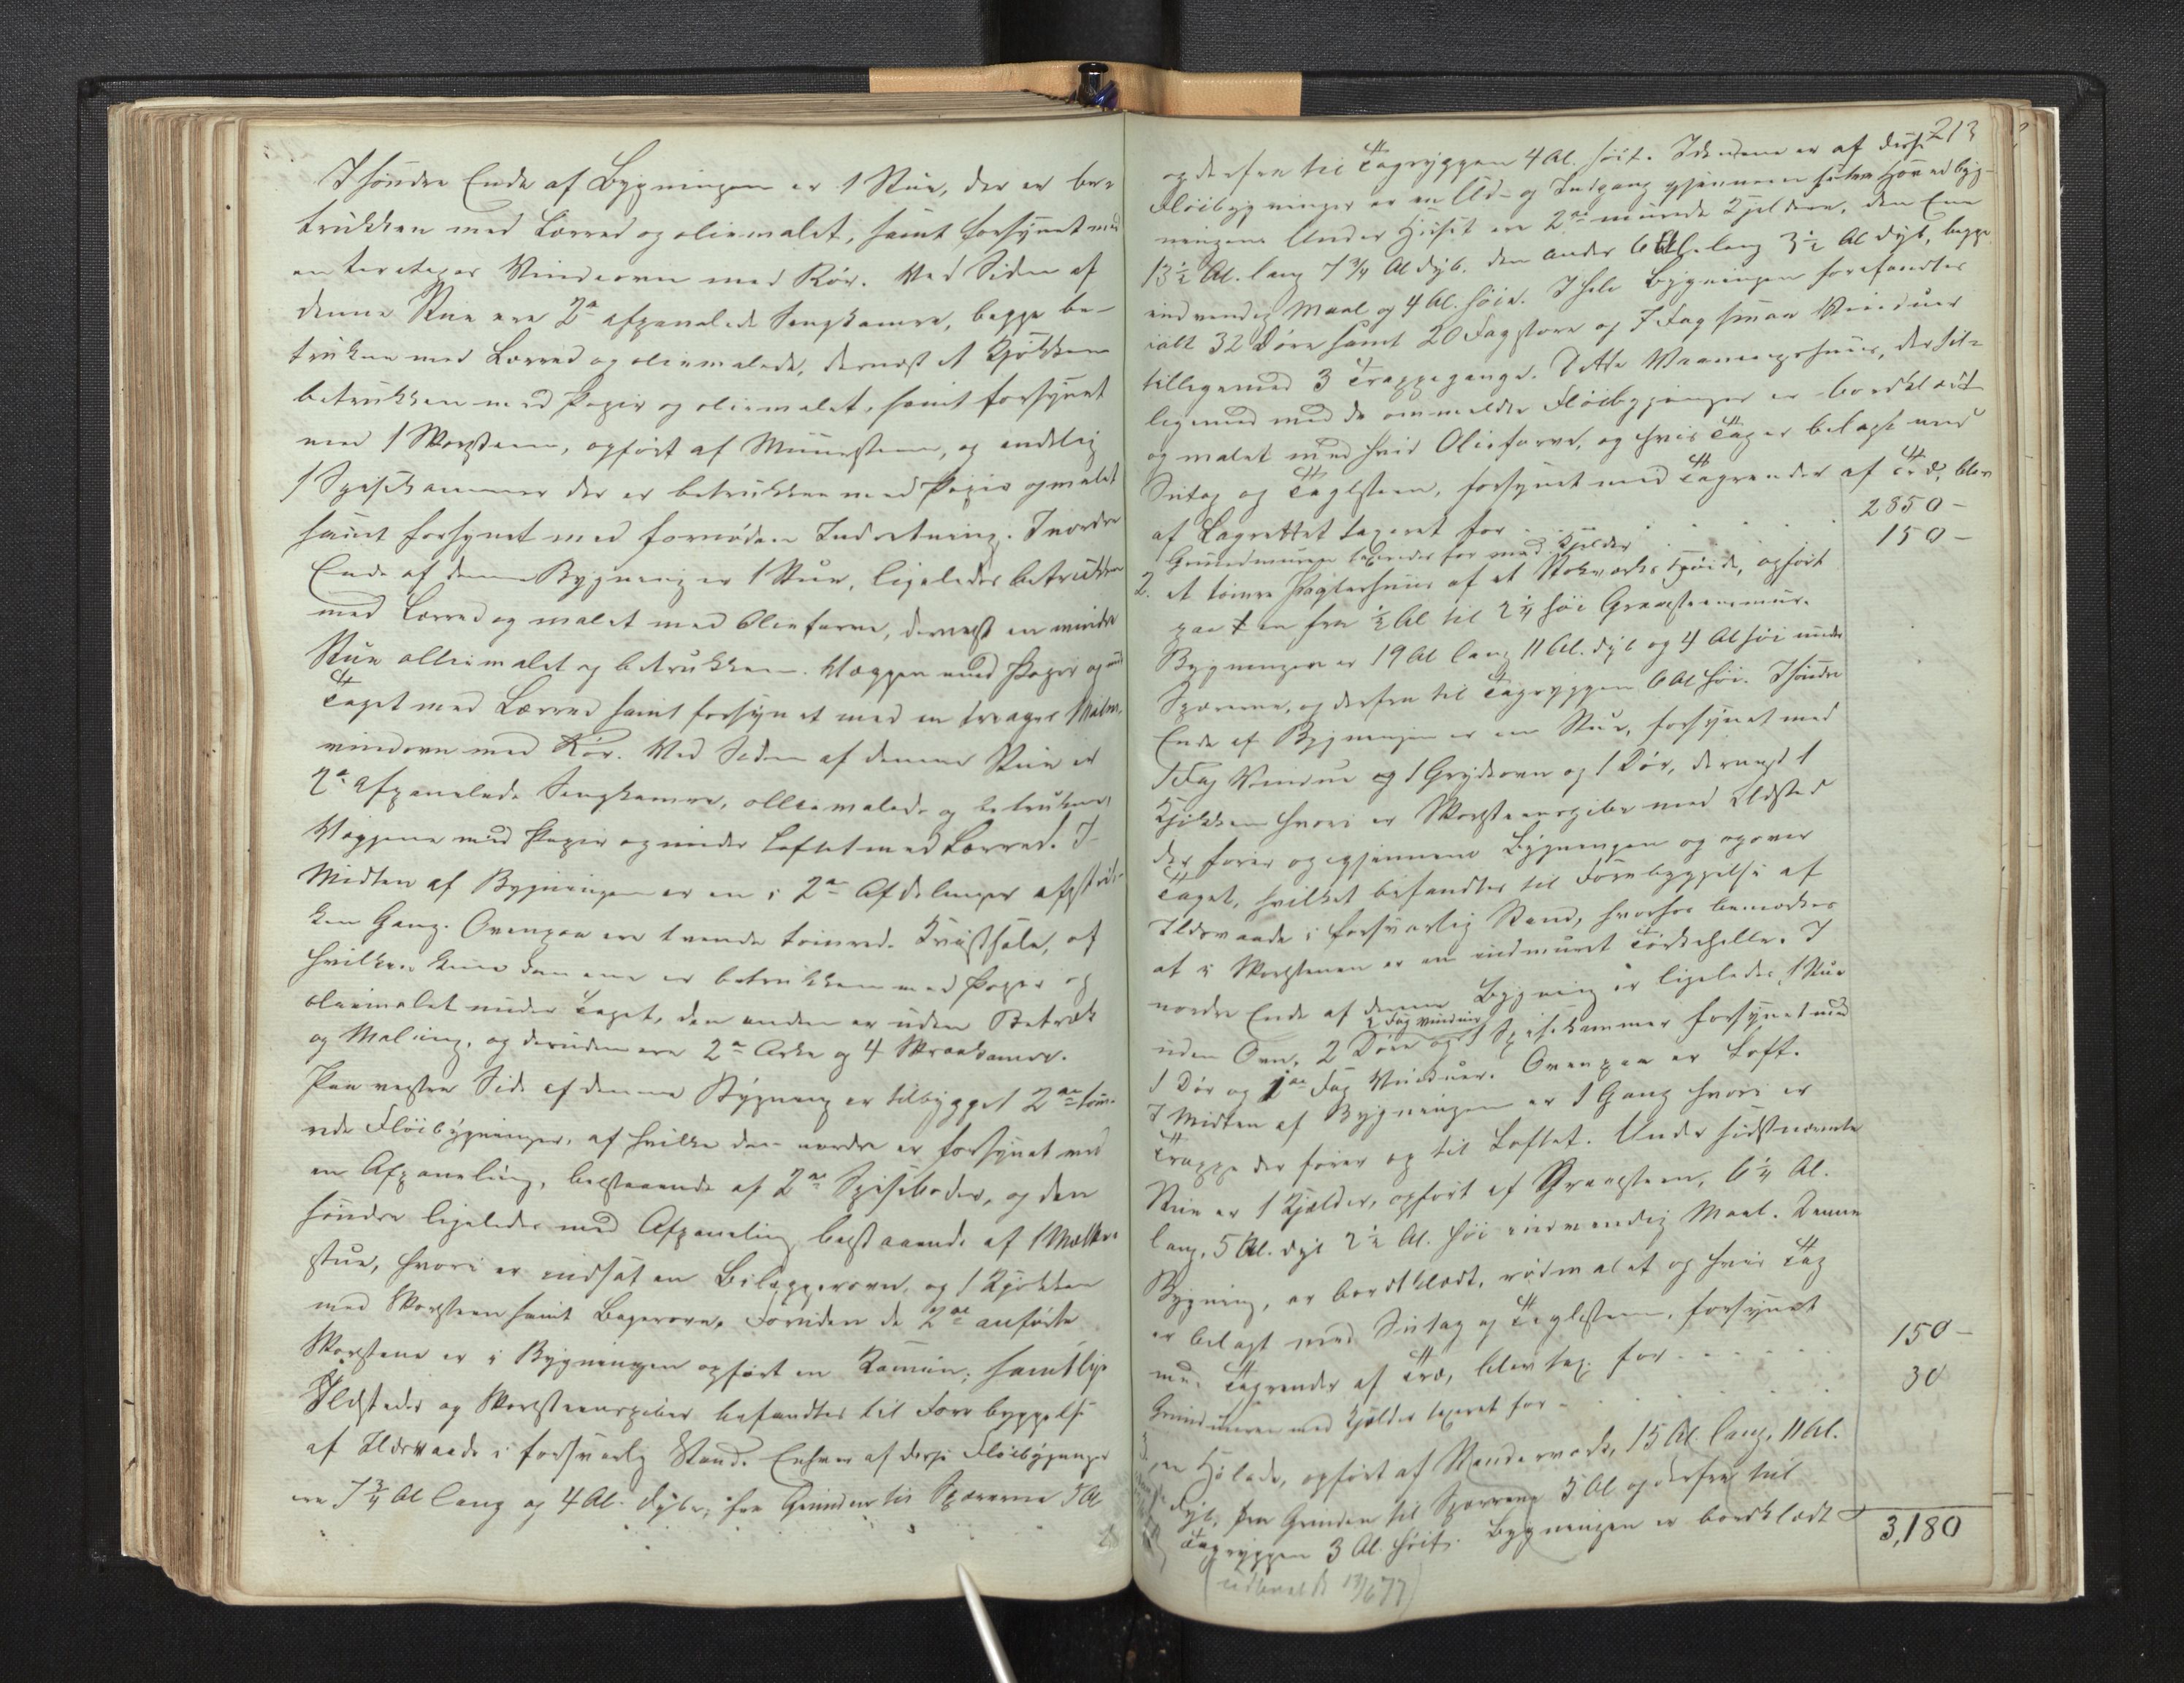 I søndre Ende af Bygningen er 1 Stue, der er be-
trukken med Lærred og oliemalet, samt forsynet med
en toetages Vindovn med Rør. Ved Siden af
denne Stue ere 2de afpanelede Sengkamre, begge be-
trukne med Lærred og oliemalede, dernæst et Kjøkken
betrukken med Papir og oliemalet, samt forsynet
med 1 Skorsteen, opført af Muursteen, og endelig
1 Spisekammer der er betrukken med Papir og malet
samt forsynet med fornøden Indretning. I nordre
Ende af denne Bygning er 1 Stue, ligeledes betrukken
med Lærred og malet med Oliefarve, dernæst en mindre
Stue olliemalet og betrukken Væggen med Papir og
Taget med Lærred samt forsynet med en treetages
vindovn med Rør. Ved Siden af denne Stue er
2de afpanelede Sengkamre, olliemalede og betrukne,
Væggene med Papir og under Loftet med Lærred. I
Midten af Bygningen er en i 2de Afdelinger
Gang. Ovenpaa ere tvende tømrede Kvistsale, af
hvilke den ene er betrukken med Papir og
oliemalet under Taget, den anden er uden Betræk
og Maling, og desuden ere 2de Arke og 4 Skraakamre.
Paa vestre Side af denne Bygning er tilbygget 2de tøm-
rede Fløibygninger, af hvilke den nordre er forsynet med
en Afpaneling, bestaaende af 2de Spiseboder, og den
søndre ligeledes med Afpaneling bestaaende af 1 Melke-
stue, hvori er indsat en Bilæggerovn, og 1 Kjøkken
med Skorsteen samt Bagerovn. Foruden de 2de anførte
Skorstene er i Bygningen opført en Kamin; samtlige
Ildsteder og Skorsteenspiber befandtes til Forebyggelse
af Ildsvaade i forsvarlig Stand. Enhver af disse Fløibygninger
ere 7 3/4 Al lang og 4 Al. dybe, fra Grunden til Sparrerne 5 Al
213
og derfra til Tagryggen 4 Al. høit. I den ene af disse
Fløibygninger er en Ud- og Indgang gjennem Hovedbyg-
ningen. Under Huset ere 2de murede Kjeldere, den Ene
13 1/2 Al. lang 7 3/4 Al dyb. den anden 6 Al. lang 3 1/2 Al dyb, begge
indvendig Maal og 4 Al. høie. I hele Bygningen forefandtes
ialt 32 Døre samt 20 Fag store og 7 Fag smaa Vinduer
tilligemed 3 Trappegange. Dette Vaaningshuus, der til-
ligemed de ommeldte Fløibygninger er bordklædt
og malet med hvid Oliefarve, og hvis Tag er belagt med
Sutag og Taglsteen, forsynet med Tagrender af Træ, blev
af Lagrettet taxeret for . . . . 2850 -
Grundmuren taxeredes for med Kjelder . . . . 150 -
2. et tømre Pagterhuus af et Stokværks Høide, opført
paa en fra 1/2 Al til 2 1/4 høi Graasteensmur.
Bygningen er 19 Al lang 11 Al. dyb og 4 Al høi under
Sparrerne, og derfra til Tagryggen 6 Al høi. I søndre
Ende af Bygningen er en Stue, forsynet med
1 Fag Vindue og 1 Grydeovn og 1 Dør, dernæst 1
Kjøkken hvori er Skorsteenspibe med Ildsted
der fører op gjennem Bygningen og op over
Taget, hvilket befandtes til Forebyggelse af
Ildsvaade i forsvarlig Stand, hvorhos bemærkes
at i Skorstenen er en indmuret Tørkehelle. I
nordre Ende af denne Bygning er ligeledes 1 Stue
2 Fag Vinduer
uden Ovn, 2 Døre og 1 Spisekammer forsynet med
1 Dør og Fag Vinduer. Ovenpaa er Loft.
I Midten af Bygningen er 1 Gang hvori er
Trappe der fører op til Loftet. Under sidstnævnte
Stue er 1 Kjælder, opført af Graasteen, 6 1/4 Al.
lang, 5 Al. dyb 2 1/2 Al. høi indvendig Maal. Denne
Bygning, er bordklædt, rødmalet og hvis Tag
er belagt med Sutag og Taglsteen, forsynet
med Tagrender af Træ, blev tax. for . . . . 150 -
Grundmuren med Kjælder taxeret for . . . . 30
en Hølade, opført af Standerværk, 15 Al. lang, 11 Al.
dyb, fra Grunden til Sparrerne 5 Al og derfra til
Tagryggen 3 Al. høit. Bygningen er bordklædt
3,180